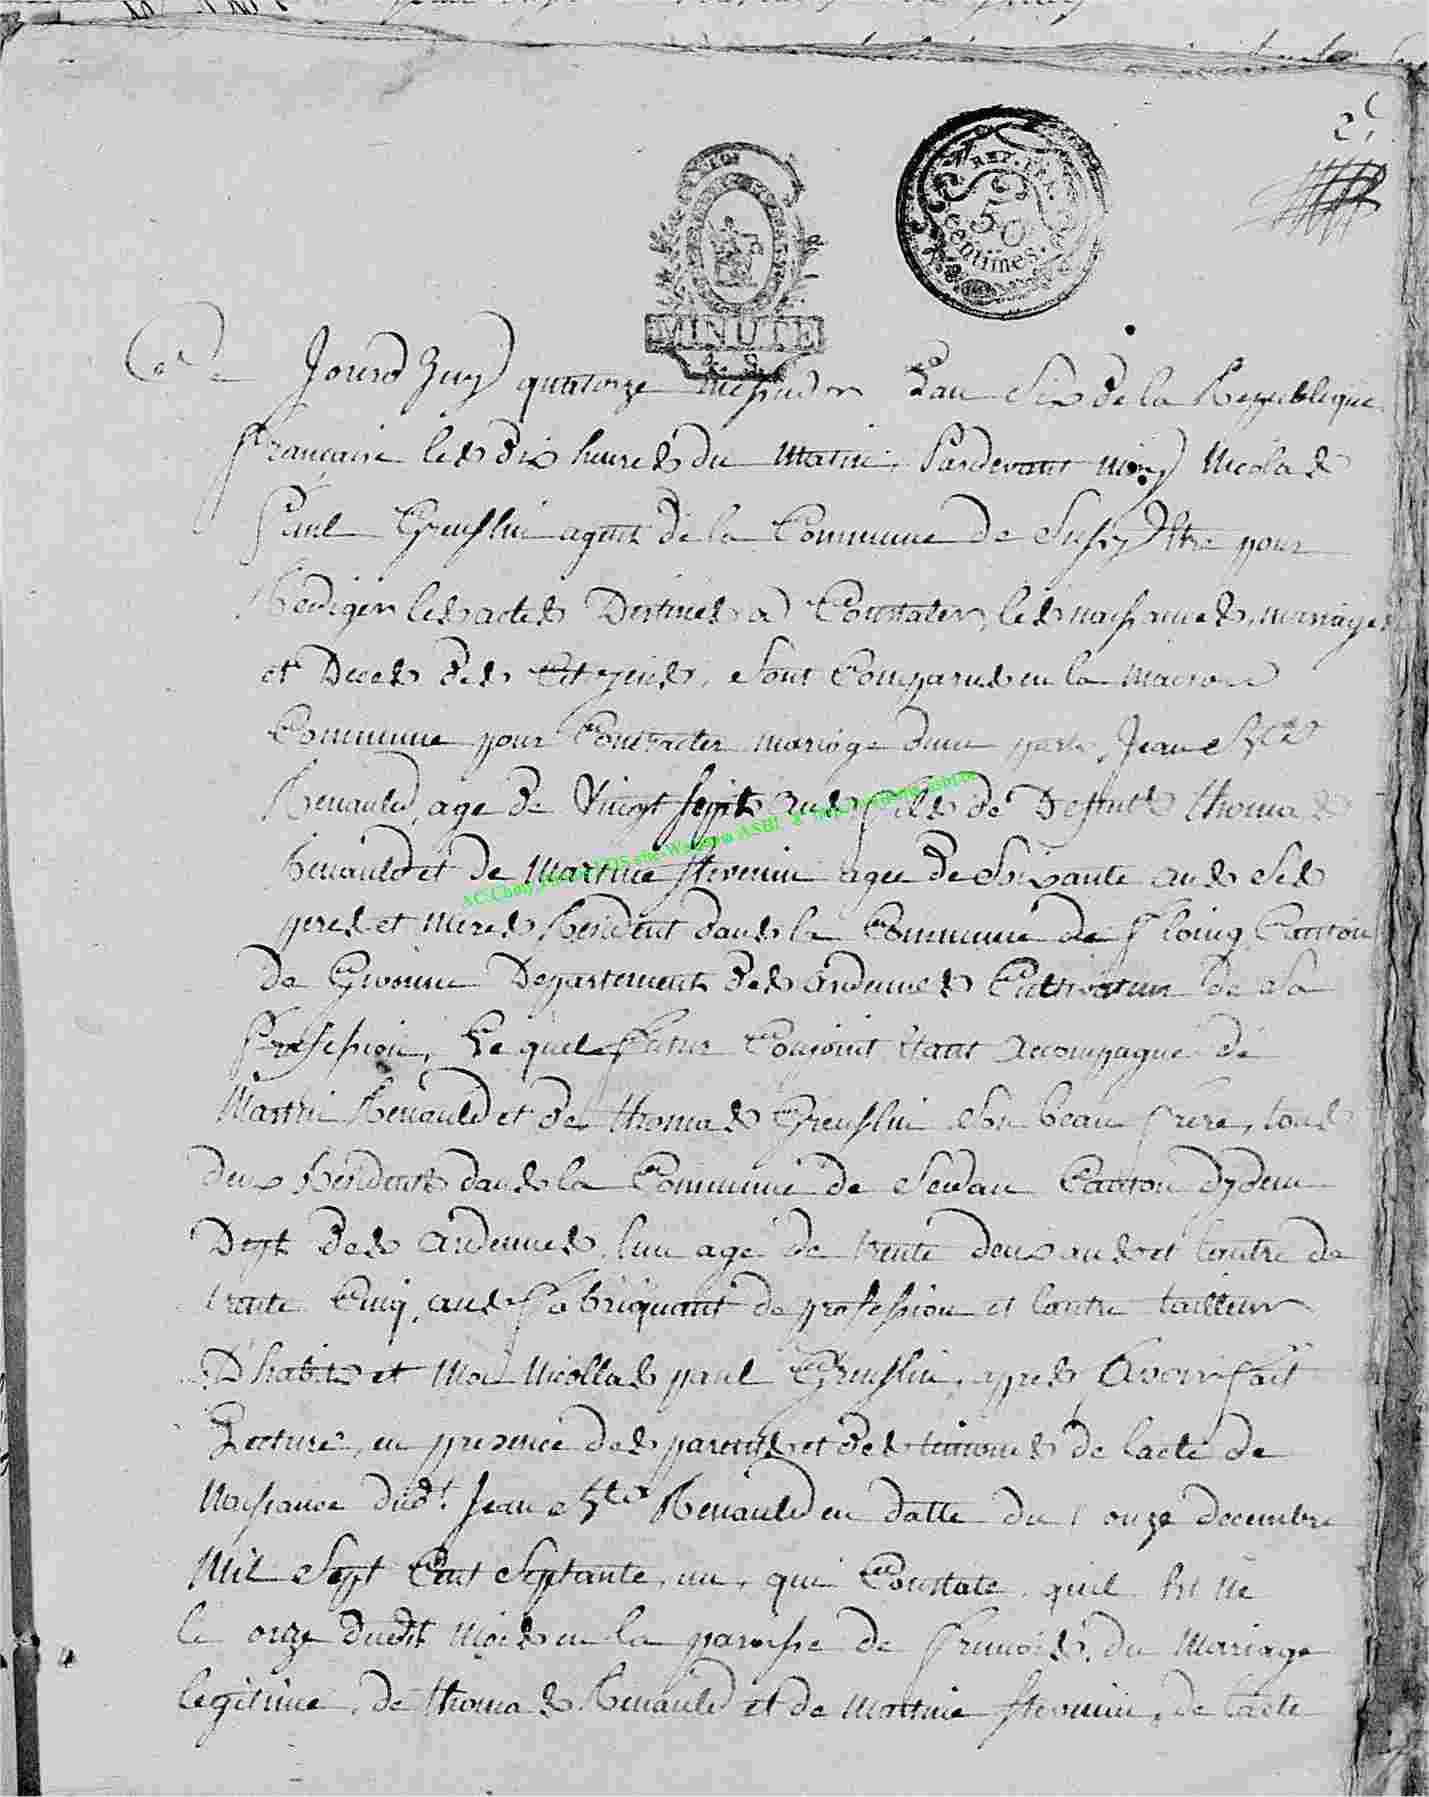 LOI
REP. FRA.
50
Centimes.
MINUTE
Ce Jourdhuy quatorze messidor L'an Six de la Republique
francaise les dix heures du matin, Pardevant moy Nicolas
Paul Greuslin agent de la Commune de pour
Rediger les actes Destines a Constater les naissances, mariages
et Deces des Citoyens, Sont Comparus en la Maison
Commune pour Contracter mariage dune part, Jean
Renauld, age de Vingt Sept ans fils de Deffunt thomas
Renauld et de Martine agee de Soixante ans Ses
pere et mere Resident dans la Commune de floing Canton
de Givonne Departement des ardennes Cultivateur de Sa
Profession, Le quel futur Conjoint etant accompagné de
Martin Renauld et de thomas Greuslin Son beau frere, tous
deux Residents dans la Commune de Sedan Canton dydem
Dept des ardennes, lun agé de trente deux ans et lautre de
trente Cinq, ans fabriquant de profession et lautre tailleur
D'habits et Moi Nicollas paul Greuslin, apres Avoir fait
Lecture, en presence des parents et des temoins de lacte de
Naissance dudt. Jean Renauld en datte du onze decembre
Mil Sept Cent Septante, un, qui Constate, quil Est né
le onze dudit mois en la paroisse de du Mariage
legitime, de thomas Renauld et de Martine de lacte